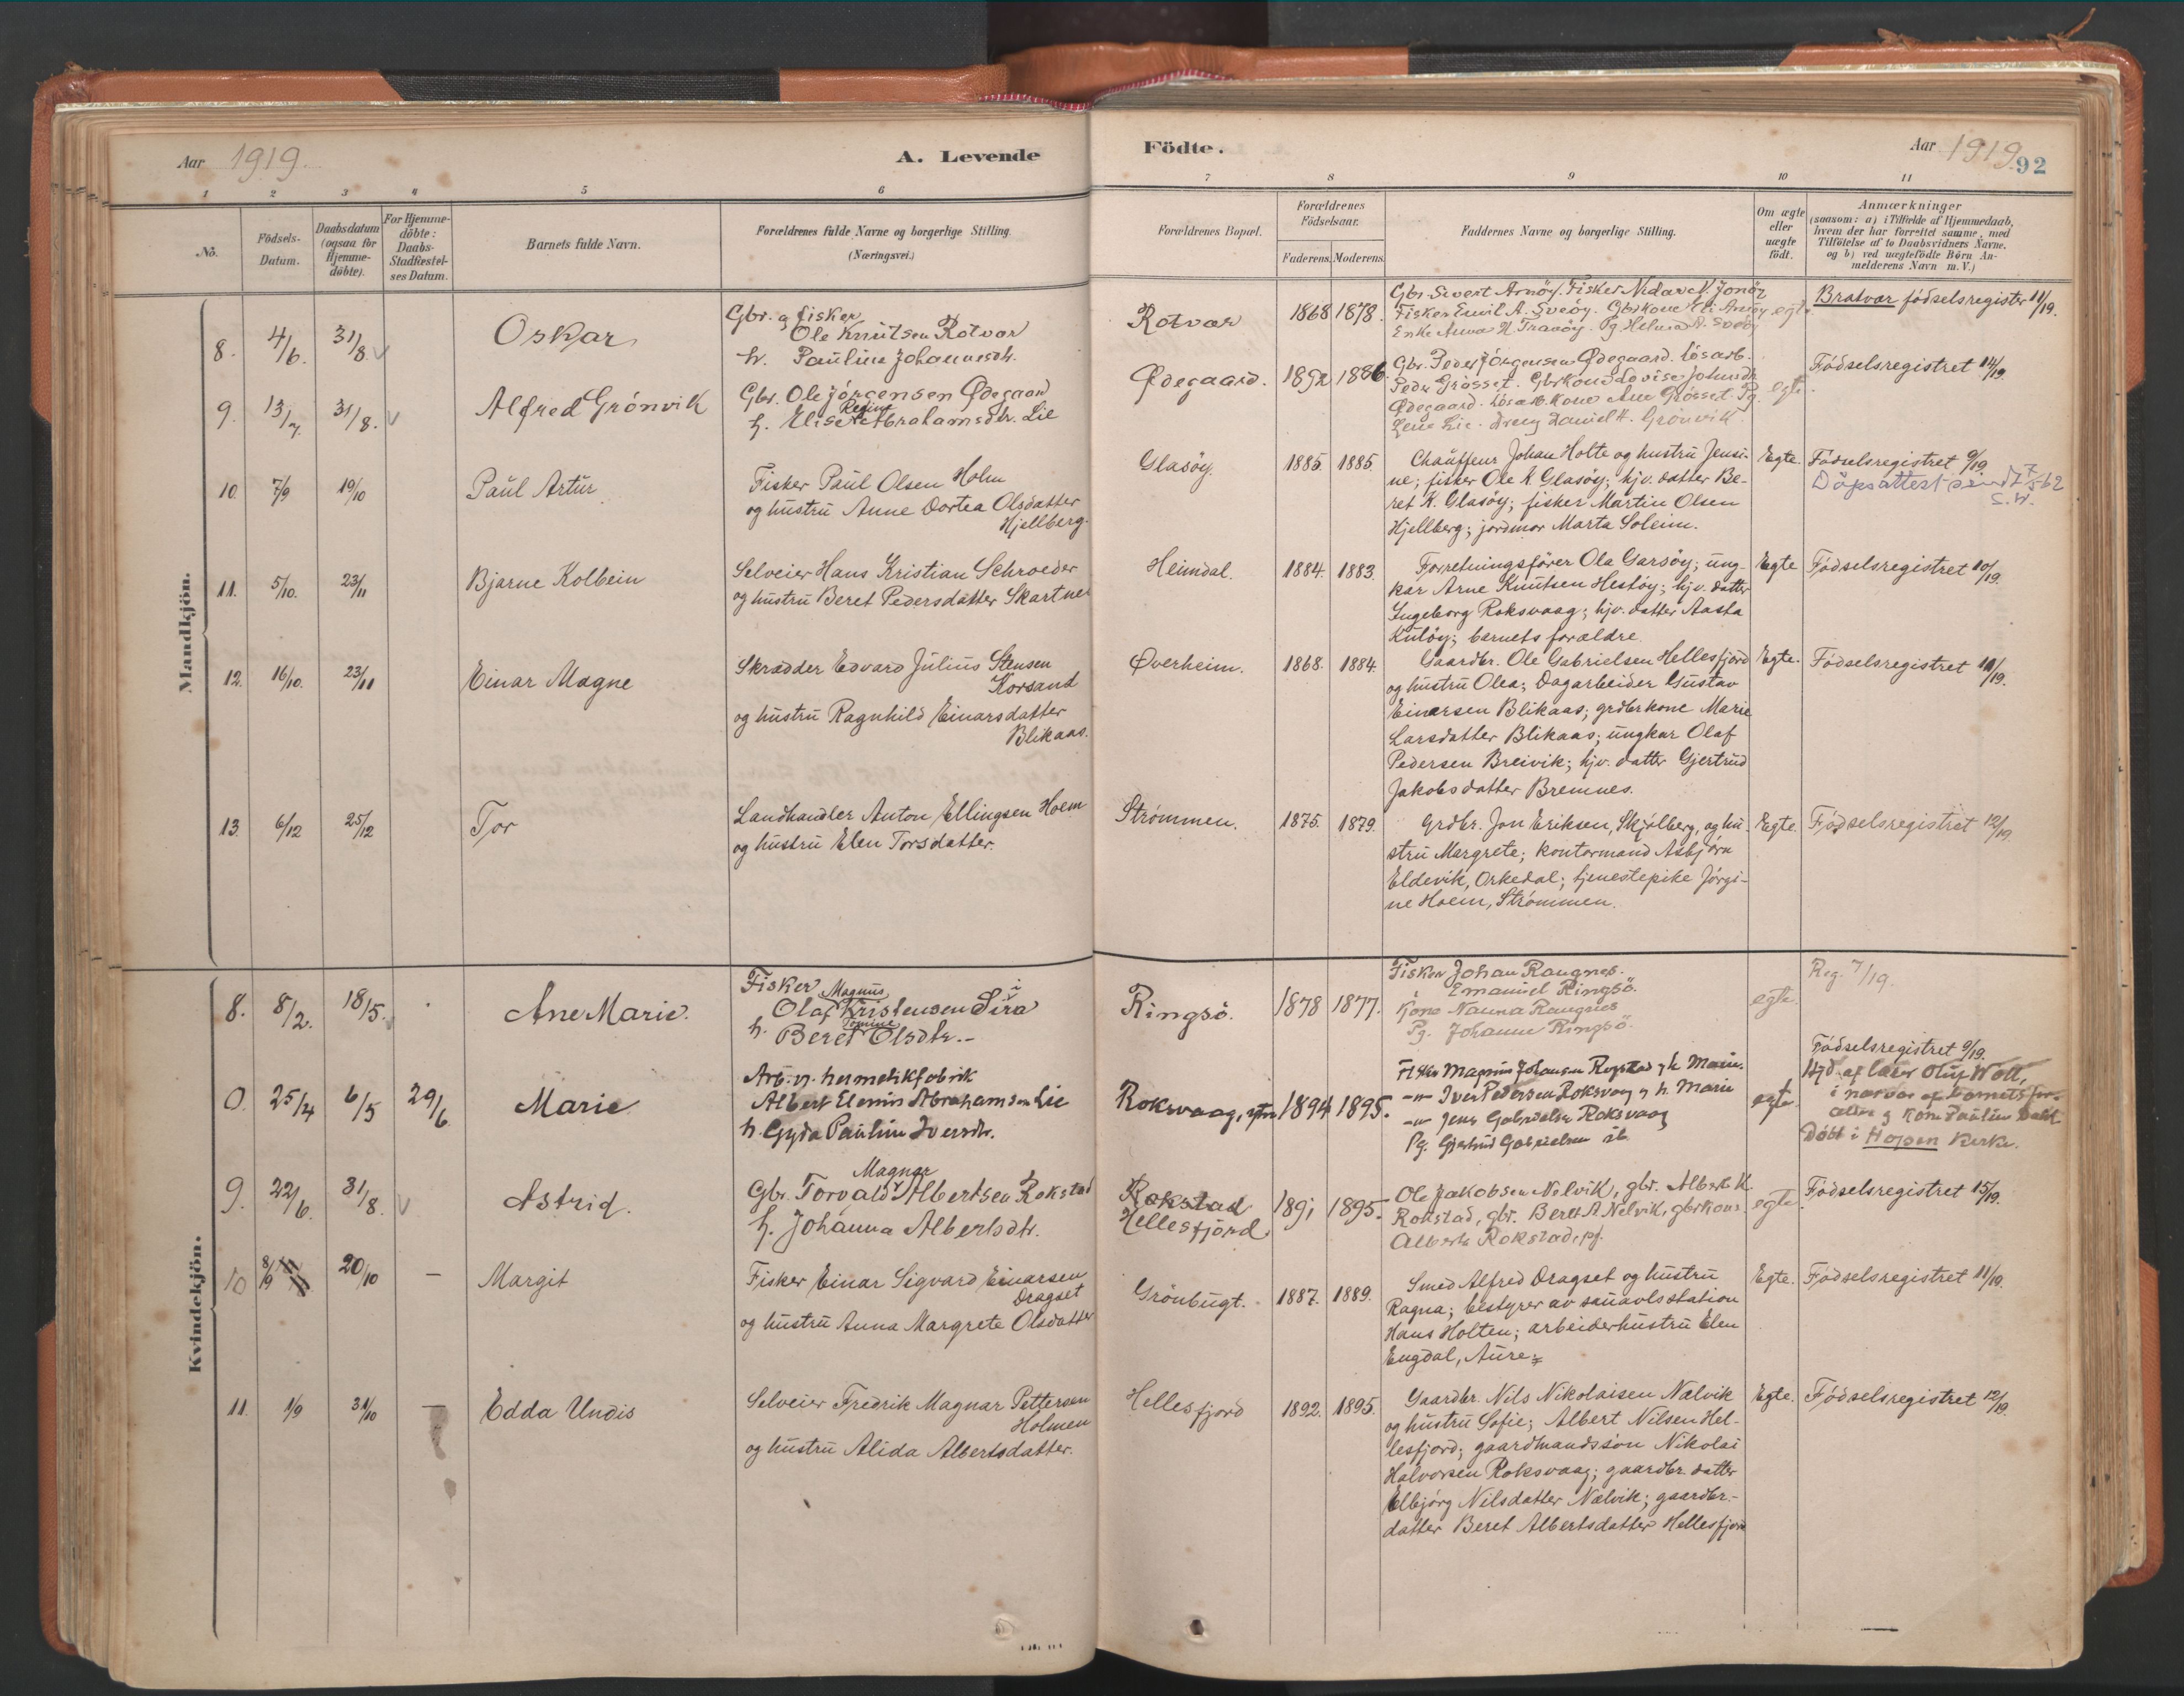 Aar 1919.
A. Levende Födte.
Aar 1919
92
1 2 3 4 5 6 7 8 9 10 11
No.
Födsels-Datum.
Daabsdatum (ogsaa for Hjemme-döbte).
For Hjemme-döbte: Daabs-Stadfæstel-ses Datum.
Barnets fulde Navn.
Forældrenes fulde Navne og borgerlige Stilling.
(Næringsvei.)
Forældrenes Bopæl.
Forældrenes Födselsaar.
Faderens. Moderens.
Faddernes Navne og borgerlige Stilling.
Om ægte eller uægte födt.
Anmærkninger
(saasom: a) i Tilfælde af Hjemmedaab,
hvem der har forrettet samme, med
Tilföielse af to Daabsvidners Navne.
og b) ved uægtefödte Börn An-
melderens Navn m. V.)
Mandkjön.
8. 4/6. 31/8. Oskar
Gbr. og fisker
Ole Knutsen Rotvar
h. Pauline Johannesdt.
Rotvær 1868 1878.
Gbr. Sivert Arnöy. Fisker
Fisker Emil A. Sveöy. Gbrkone
Enke Anna
egte
Bratvær födselsregister 11/19.
9. 13/7. 31/8. Alfred Grönvik
Gbr. Ole Jörgensen Ødegaard
h. Elise Regine Abrahamsdtr. Lie
Ødegaard. 1892 1886.
Gbr. Peder Jörgensen Ødegaard. Lösarb.
Peder Grösset. Gbrkone Lovise Johnsdt.
Ødegaard. Lösarb.kone Ane Grösset. Pg.
Lene Lie. Dreng Daniel H. Grönvik
egte
Födselsregistret 14/19.
10. 7/9 19/10 Paul Artur
Fisker Paul Olsen Holm
og hustru Anne Dortea Olsdatter
Hjellberg.
Glasöy. 1885. 1885.
Chauffeur Johan Holte og hustru Jensi-
ne; fisker Ole K. Glasöy; hjv. datter Be-
ret K. Glasöy; fisker Martin Olsen
Hjellberg; jordmor Marta Soleim.
Egte.
Födselsregistret 9/19.
Dåpsattest send 7/5 62
11. 5/10. 23/11 Bjarne Kolbein
Selveier Hans Kristian Schroeder
og hustru Beret Pedersdatter Skartnes
Heimdal. 1884. 1883.
Forretningsförer Ola Garsöy; ung-
kar Arne Knutsen Hestöy; hjv. datter
Ingeborg Roksvaag; hjv. datter Aasta
Kulöy; barnets forældre.
Egte
Födselsregistret 10/19.
12. 16/10. 23/11 Einar Magne
Skrædder Edvard Julius Stensen
Korsand
og hustru Ragnhild Einarsdatter
Blikaas.
Øverheim. 1868. 1884.
Gaardbr. Ole Gabrielsen Hellesfjord
og hustru Olea; Dagarbeider Gustav
Einarsen Blikaas; grdbrkone Marie
Larsdatter Blikaas; ungkar Olaf
Pedersen Breivik; hjv. datter Gjertrud
Jakobsdatter Bremnes.
Egte.
Födselsregistret 11/19.
13. 6/12 25/12 Tor
Landhandler Anton Ellingsen Hoem
og hustru Elen Torsdatter.
Strömmen. 1875. 1879.
Grdbr. Jon Eriksen, Skjölberg, og hu-
stru Margrete; kontormand Asbjörn
Eldevik, Orkedal; tjenestepike Jörgi-
ne Hoem, Strömmen.
Egte.
Födselsregistret 12/19.
Kvindekjön.
8. 8/2. 18/5. Ane Marie.
Fisker
Olaf Magnus Kristensen Sira
h. Beret Tomine Olsdtr.
Ringsö. 1878 1877.
Fisker Johan Raugnes.
Emanuel Ringsö.
Kone Nanna Raugnes
Pg. Johanne Ringsö.
egte.
Reg. 7/19.
0. 25/4 6/5 29/6. Marie
Arb. v. hermetikfabrik
Albert Elenius Abrahamsen Lie
h. Gyda Pauline Iversdtr.
Roksvaag, ytre 1894 1895.
Fisker Magnus Johansen Rogstad og h. Marie.
-"- Iver Pedersen Roksvaag og h. Marie
-"- Jens Gabrielsen Roksvaag
Pg. Gjertrud Gabrielsen ib.
egte.
Födselsregistret 9/19.
Hjd. af lærer Oluf Woll,
i nærvær af barnets for-
ældre og kone Pauline
Döbt i Hopen Kirke.
9. 22/6. 31/8. Astrid.
Gbr. Torvald Magnar Albertsen Rokstad
h. Johanna Albertsdtr.
Rokstad
Hellesfjord. 1891 1895.
Ole Jakobsen Nelvik, gbr. Albert K.
Rokstad, gbr. Beret A. Nelvik, gbrkone.
Alberte Rokstad, pg.
egte
Födselsregistret 15/19.
10 8/9 20/10 — Margit
Fisker Einar Sigvard Einarsen
Dragset
og hustru Anna Margrete Olsdatter
Grönbugt. 1887. 1889.
Smed Alfred Dragset og hustru
Ragna; bestyrer av sauavlsstation
Hans Holten; arbeiderhustru Elen
Engdal, Aure.
Egte.
Födselsregistret 11/19.
11. 1/9 31/10 — Edda Undis
Selveier Fredrik Magnar Pettersen
Holmen
og hustru Alida Albertsdatter.
Hellesfjord 1892. 1895.
Gaardbr. Nils Nikolaisen Nælvik
og hustru Sofie; Albert Nilsen Hel-
lesfjord; gaardmandssön Nikolai
Halvorsen Roksvaag; gaardbr. datter
Elbjörg Nilsdatter Nælvik; gaardbr.-
datter Beret Albertsdatter Hellesfjord
Egte.
Födselsregistret 12/19.